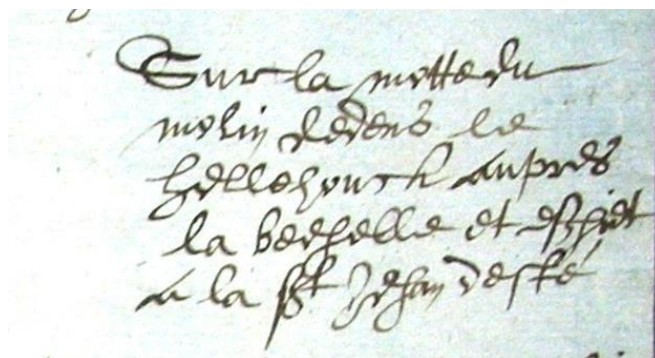 Sur la motte du
molin dedens le
hellehouck aupres
la becquelle et eschiet
a la St Jehan desté